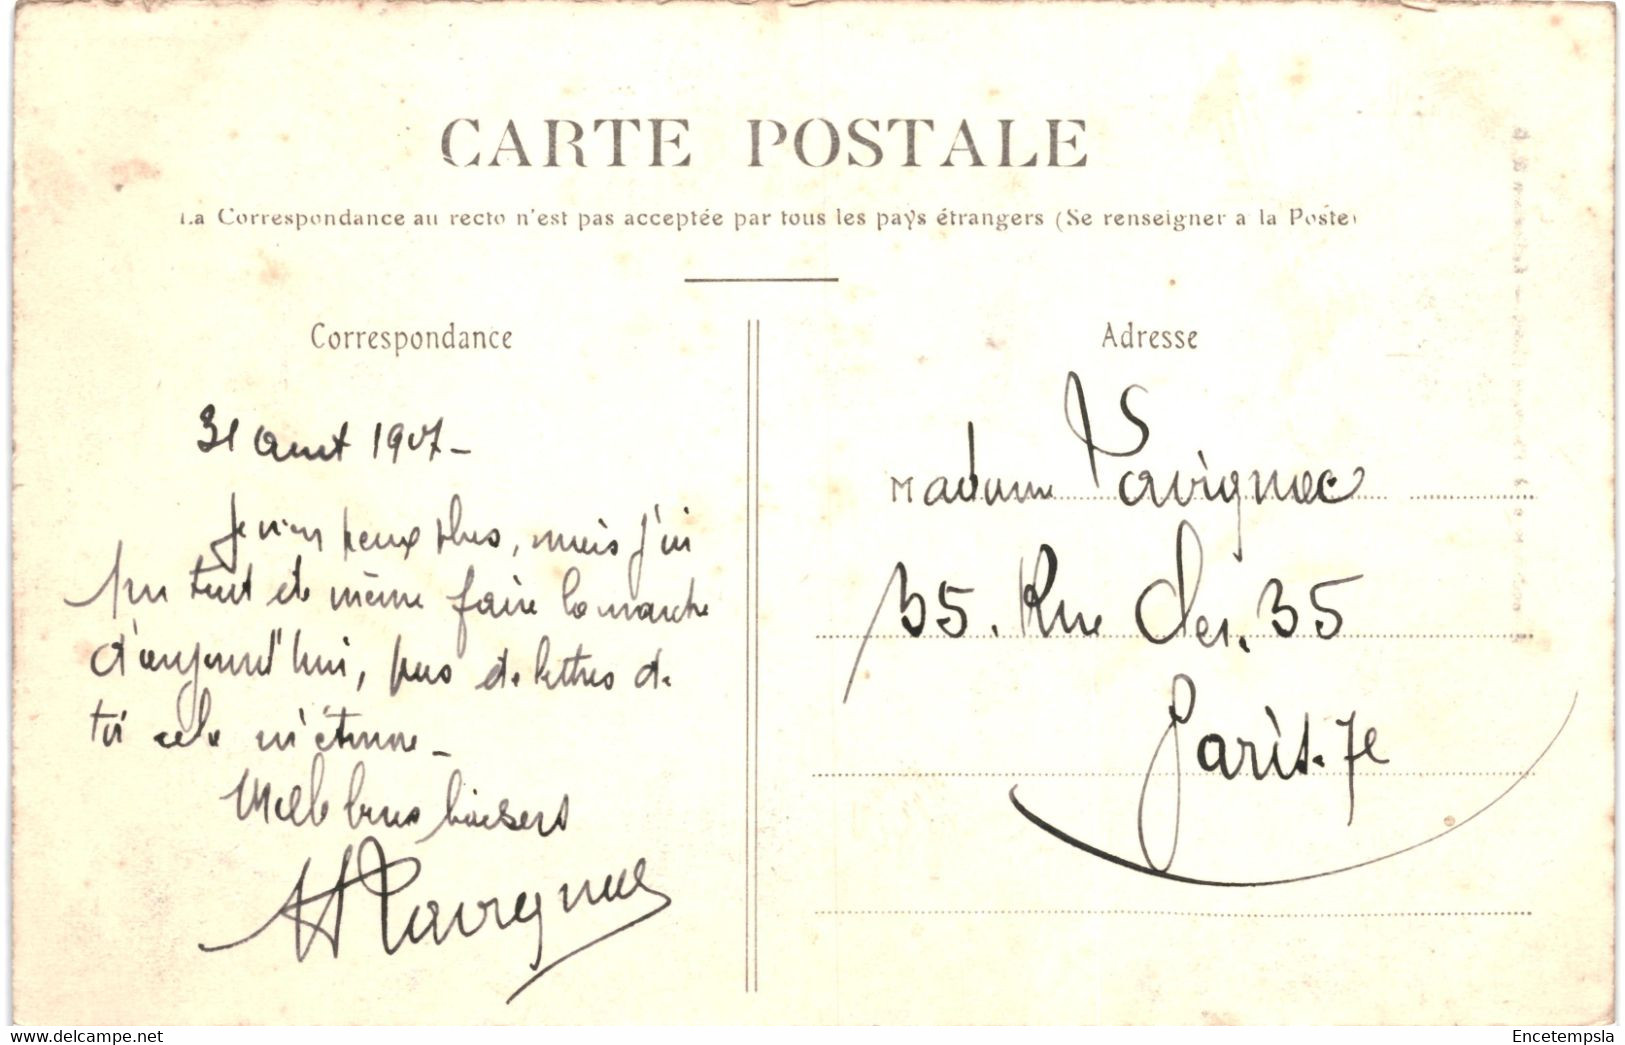 CARTE POSTALE
La Correspondance au recto n'est pas acceptée par tous les pays étrangers (Se renseigner a la Poste)
Correspondance
Adresse
31 aout 1907 -
Je n'en peux plus, mais j'ai
pu tout de même faire la marche
d'aujourd'hui, pas de lettres de
toi cela m'étonne -
Mille bons baisers
Lavignac
Madame Lavignac
35. Rue
35
Paris. 7e
www.delcampe.net
Encetempsla